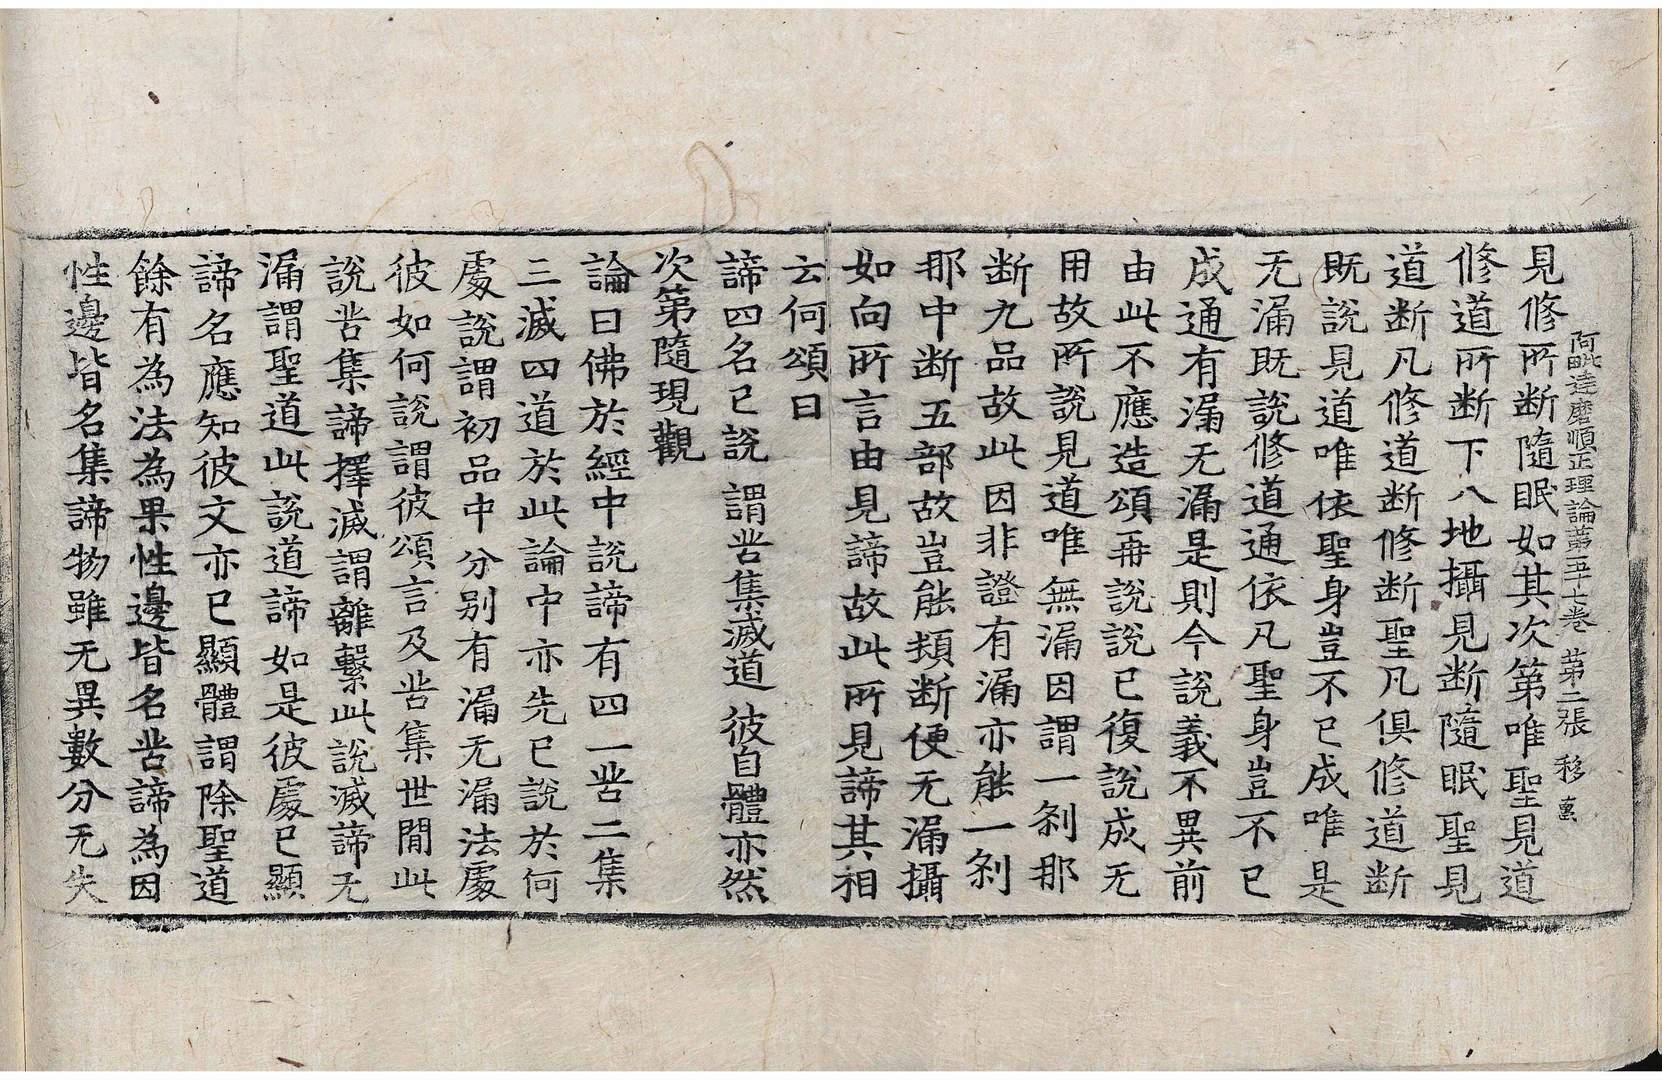 阿毗達磨順正理論第五十七卷 第二張 移
見修所断隨眠如其次第唯聖見道
修道所断下八地攝見断隨眠聖見
道断凡修道断修断聖凡俱修道断
既說見道唯依聖身豈不已成唯是
无漏既說修道通依凡聖身豈不已
成通有漏无漏是則今說義不異前
由此不應造頌再說說已復說成无
用故所說見道唯無漏因謂一剎那
断九品故此因非證有漏亦能一剎
那中断五部故豈能類断便无漏攝
如向所言由見諦故此所見諦其相
云何頌曰
諦四名已說 謂苦集滅道 彼自體亦然
次第隨現觀
論曰佛於經中說諦有四一苦二集
三滅四道於此論中亦先已說於何
處說謂初品中分別有漏无漏法處
彼如何說謂彼頌言及苦集世間此
說苦集諦擇滅謂離繫此說滅諦无
漏謂聖道此說道諦如是彼處已顯
諦名應知彼文亦已顯體謂除聖道
餘有為法為果性邊皆名苦諦為因
性邊皆名集諦物雖无異數分无失